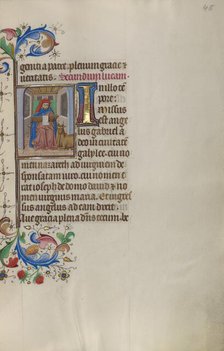 48
geniti a patre plenum gracie et
ueritatis Secundum lucam
In illo tem
pore
missus
est ange
lus gabriel a
deo in ciuitate
galylee cui no
men nazareth ad uirginem de
sponsatam uiro cui nomen e
rat ioseph de domo dauid et no
men uirginis maria Et ingres
sus angelus ad eam dixit
aue gracia plena dominus tecum be